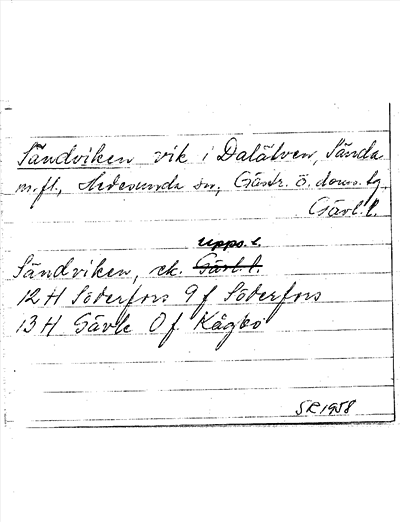 Sändviken vik i Dalälven, Sända
m.fl., Hedesunda sn, Gästr. ö. doms. tg,
Gävl. l.
Upps. l.
Sändviken, ek. Gävl. l.
12 H Söderfors 9 f Söderfors
13 H Gävle 0 f Kågbo
SR 1958